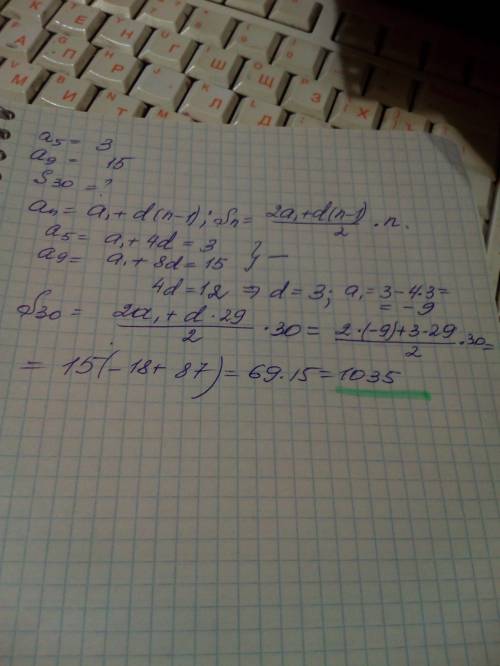 К Е Н Г Ш
А П Р О Л Щ З Х
В М И Т Ь К Л Д Ж
a₅ = 3
a₉ = 15
S₃₀ = ?
aₙ = a₁ + d(n-1); Sₙ = (2a₁ + d(n-1))/2 · n.
a₅ = a₁ + 4d = 3 } —
a₉ = a₁ + 8d = 15
4d = 12 ⇒ d = 3; a₁ = 3 - 4·3 =
= -9
S₃₀ = (2a₁ + d·29)/2 · 30 = (2·(-9) + 3·29)/2 · 30 =
= 15(-18 + 87) = 69·15 = 1035